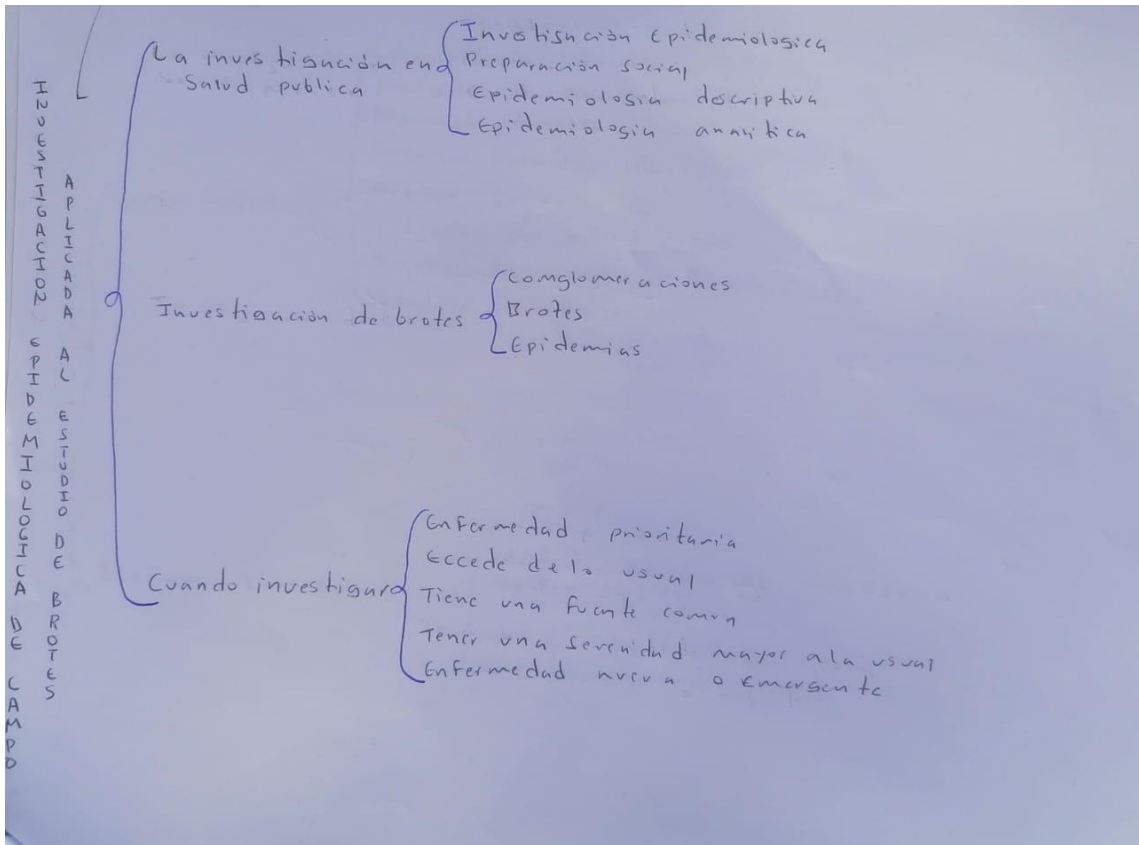 INVESTIGACION EPIDEMIOLOGICA DE CAMPO
APLICADA AL ESTUDIO DE BROTES
La investigación en
Salud publica
Investisnción Epidemiologica
Preparación social
Epidemiologia descriptiva
Epidemiologia analitica
Investigación de brotes
Comglomeraciones
Brotes
Epidemias
Cuando investigar
Enfermedad prioritaria
Eccede de lo usual
Tiene una fuente comun
Tener una serenidad mayor a la usual
Enfermedad nueva o Emergente